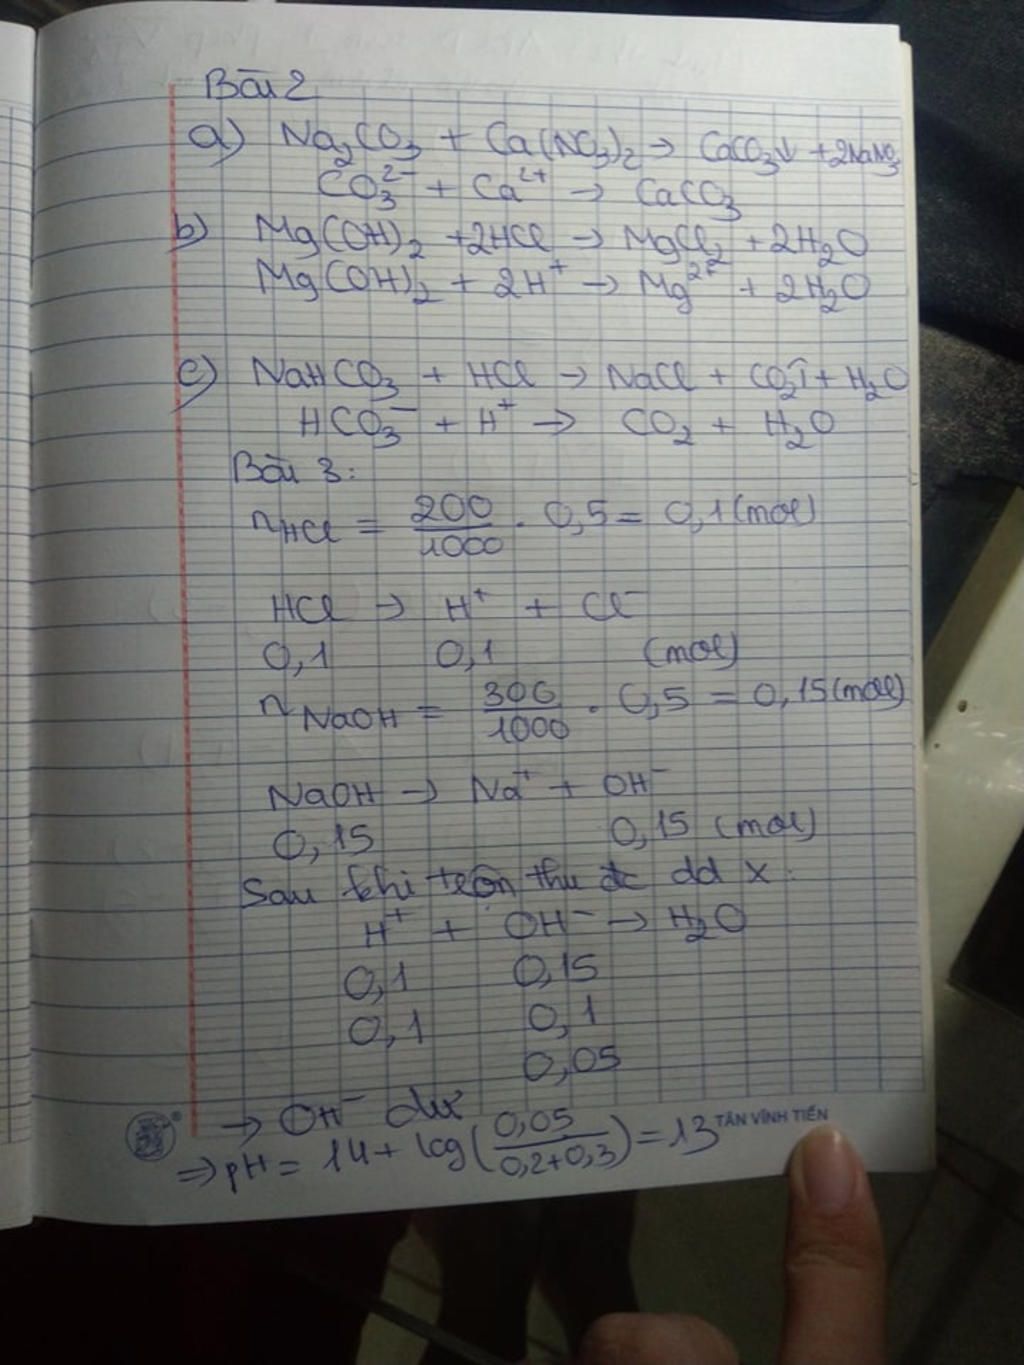 Bài 2
a) Na₂CO₃ + Ca(NO₃)₂ → CaCO₃↓ + 2NaNO₃
CO₃²⁻ + Ca²⁺ → CaCO₃
b) Mg(OH)₂ + 2HCl → MgCl₂ + 2H₂O
Mg(OH)₂ + 2H⁺ → Mg²⁺ + 2H₂O
c) NaHCO₃ + HCl → NaCl + CO₂↑ + H₂O
HCO₃⁻ + H⁺ → CO₂ + H₂O
Bài 3:
nHCl = 200/1000 . 0,5 = 0,1 (mol)
HCl → H⁺ + Cl⁻
0,1 0,1 (mol)
nNaOH = 300/1000 . 0,5 = 0,15 (mol)
NaOH → Na⁺ + OH⁻
0,15 0,15 (mol)
Sau khi trộn thu đc dd X:
H⁺ + OH⁻ → H₂O
0,1 0,15
0,1 0,1
0,05
→ OH⁻ dư
⇒ pH = 14 + log(0,05/0,2+0,3) = 13
TÂN VĨNH TIẾN